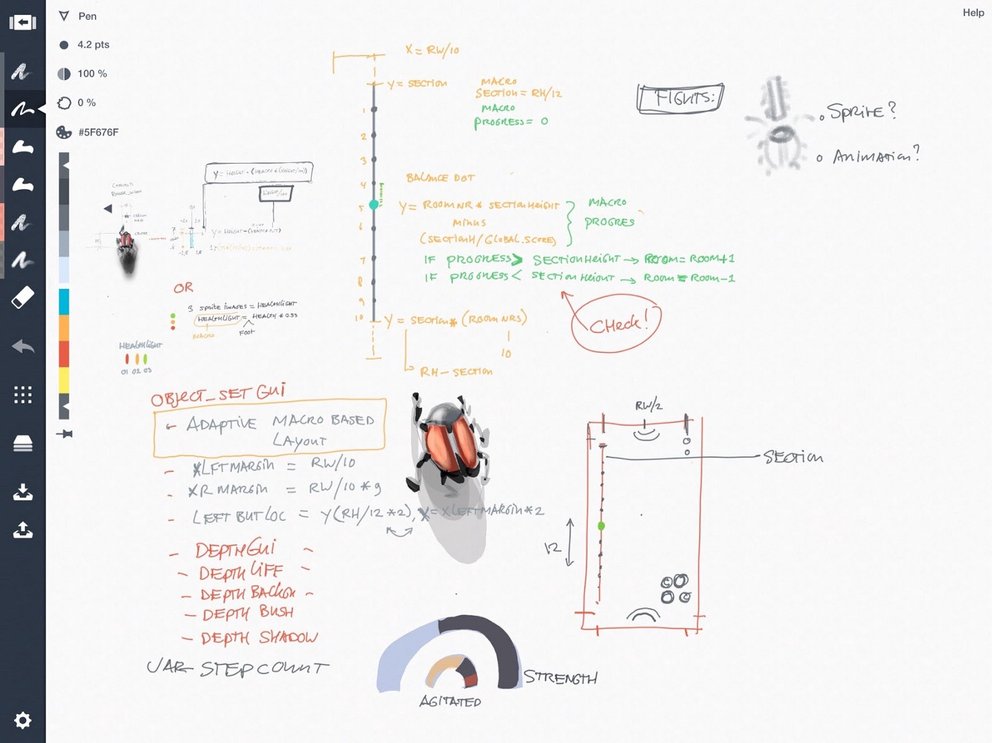 Pen
Help
4.2 pts
100 %
0 %
#5F676F
X = RW/10
Y = SECTION
MACRO
SECTION = RH/12
MACRO
PROGRESS = 0
1
2
3
4
5
6
7
8
9
10
BALANCE DOT
Y = ROOMNR * SECTIONHEIGHT
MINUS
(SECTIONH/GLOBAL.SCORE)
MACRO
PROGRES
IF PROGRESS > SECTIONHEIGHT → ROOM = ROOM+1
IF PROGRESS < SECTIONHEIGHT → ROOM = ROOM-1
CHECK!
Y = SECTION * (ROOM NRS)
10
RH - SECTION
FIGHTS:
SPRITE?
ANIMATION?
OR
3 SPRITE IMAGES = HEALTHLIGHT
HEALTHLIGHT = HEALTH * 0.33
MACRO
FOOT
HEALTHLIGHT
01 02 03
OBJECT_SET GUI
- ADAPTIVE MACRO BASED
LAYOUT
- XLFTMARGIN = RW/10
- XR MARGIN = RW/10 * 9
- LEFT BUTLOC = Y(RH/12 * 2), X = XLEFTMARGIN * 2
- DEPTH GUI -
- DEPTH LIFE -
- DEPTH BACKGR -
- DEPTH BUSH
- DEPTH SHADOW
VAR STEPCOUNT
STRENGTH
AGITATED
RW/2
SECTION
12